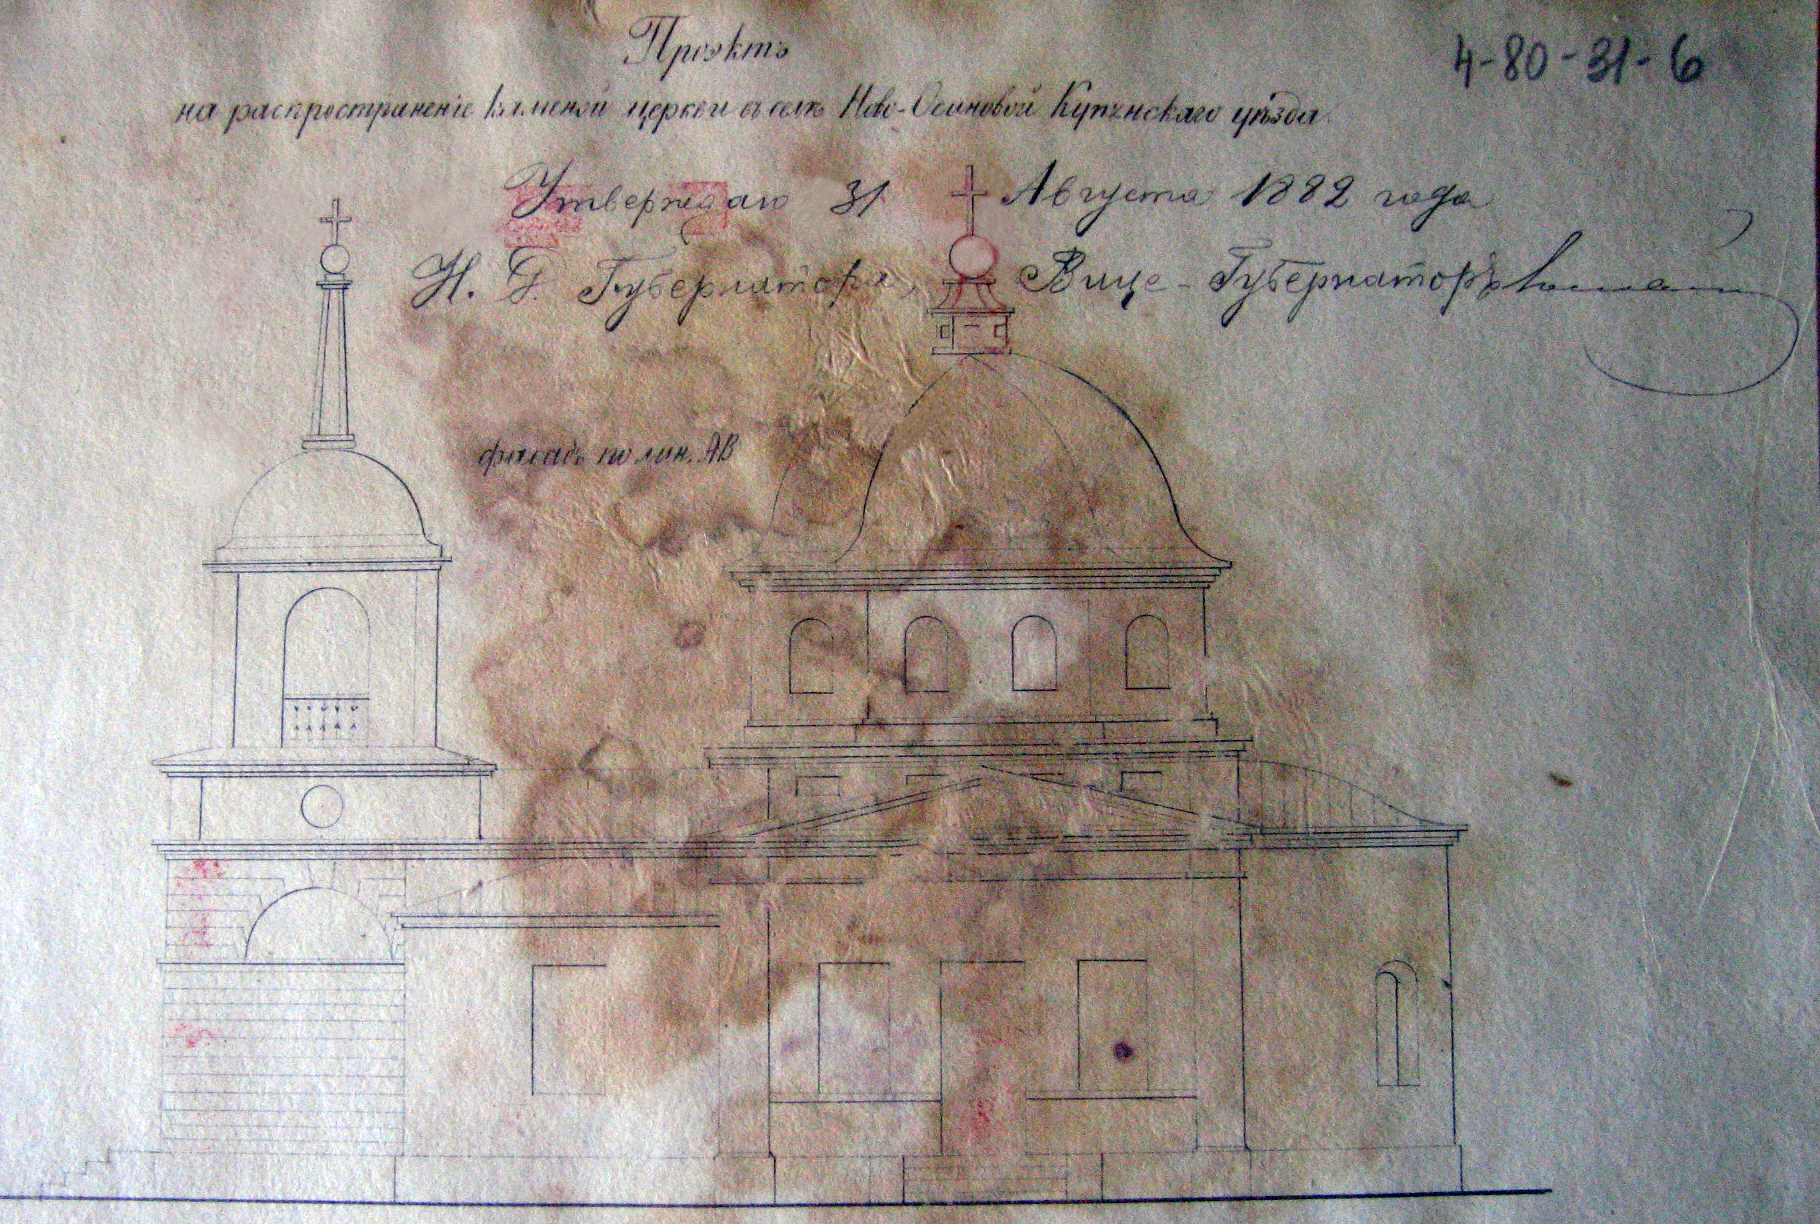 Проэктъ
4-80-31-6
на распространеніе каменой церкви въ селѣ Ново-Осиновой Купянскаго уѣзда
Утверждаю 31 Августа 1882 года
И. д. Губернатора, Вице-Губернаторъ
фасадъ по лин. АВ